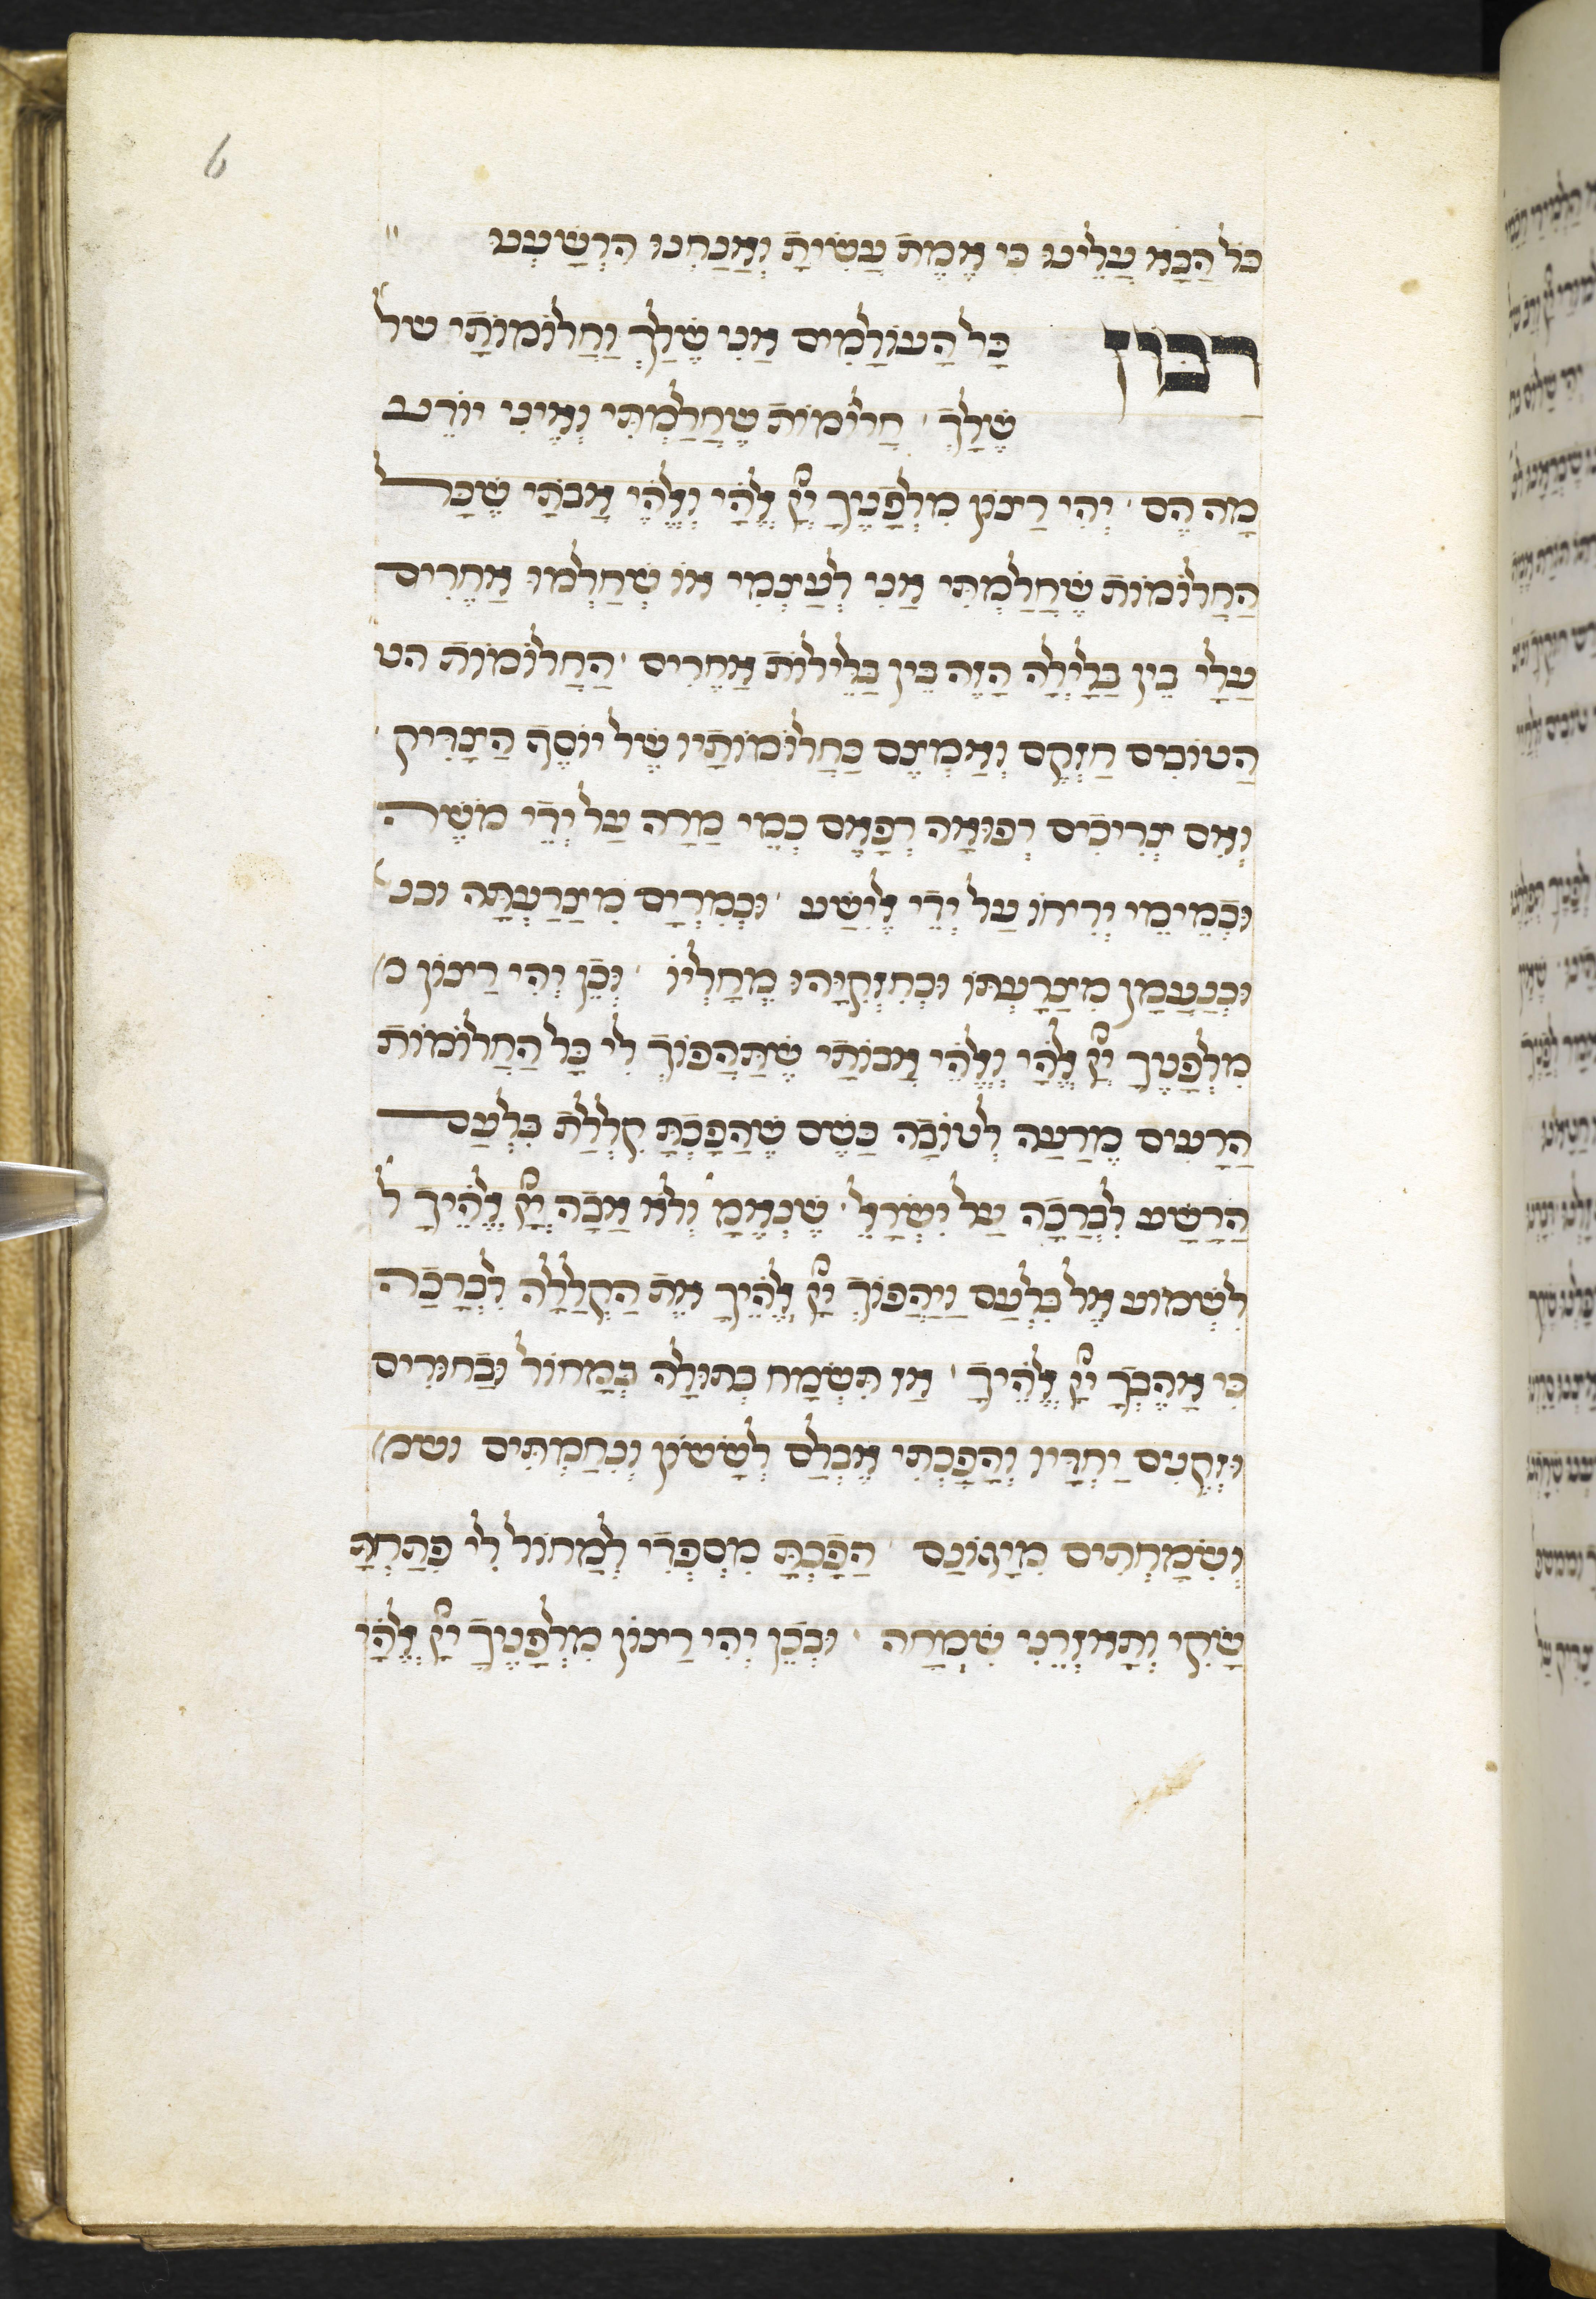 6
כֹּל הַבָּא עָלֵינוּ כִּי אֱמֶת עָשִׂיתָ וַאֲנַחְנוּ הִרְשָׁעְנוּ
רבון כָּל הָעוֹלָמִים אֲנִי שֶׁלְּךָ וַחֲלוֹמוֹתַי של
שֶׁלְּךָ חֲלוֹמוֹת שֶׁחָלַמְתִּי וְאֵינִי יוֹדֵע
מָה הֶם יְהִי רַצוֹן מִלְּפָנֶיךָ יְיָ אֱלֹהַי וֵאלֹהֵי אֲבֹתַי שֶׁכָּל
הַחֲלוֹמוֹת שֶׁחָלַמְתִּי אֲנִי לְעַצְמִי אוֹ שֶׁחָלְמוּ אֲחֵרִים
עָלַי בֵּין בַּלַּיְלָה הַזֶּה בֵּין בַּלֵּילוֹת אֲחֵרִים הַחֲלוֹמוֹת הט
הַטּוֹבִים חַזְּקֵם וְאַמְּצֵם כַּחֲלוֹמוֹתָיו שֶׁל יוֹסֵף הַצַּדִּיק
וְאִם צְרִיכִים רְפוּאָה רְפָאֵם כְּמֵי מָרָה עַל יְדֵי מֹשֶׁה
וּכְמֵימֵי יְרִיחוֹ עַל יְדֵי אֱלִישַׁע וּכְמִרְיָם מִצָּרַעְתָּהּ וכנ
וּכְנַעֲמָן מִצָּרַעְתּוֹ וּכְחִזְקִיָּהוּ מֵחָלְיוֹ וּבְכֵן יְהִי רַצוֹן מ
מִלְּפָנֶיךָ יְיָ אֱלֹהַי וֵאלֹהֵי אֲבוֹתַי שֶׁתַּהֲפוֹךְ לִי כָּל הַחֲלוֹמוֹת
הָרָעִים מֵרָעָה לְטוֹבָה כַּשֵּׁם שֶׁהָפַכְתָּ קִלְלַת בִּלְעָם
הָרָשָׁע לִבְרָכָה עַל יִשְׂרָאֵל שֶׁנֶּאֱמַ' וְלֹא אָבָה יְיָ אֱלֹהֶיךָ ל
לִשְׁמוֹעַ אֶל בִּלְעָם וַיַּהֲפוֹךְ יְיָ אֱלֹהֶיךָ אֶת הַקְּלָלָה לִבְרָכָה
כִּי אֲהֵבְךָ יְיָ אֱלֹהֶיךָ אָז תִּשְׂמַח בְּתוּלָה בְּמָחוֹל וּבַחוּרִים
וּזְקֵנִים יַחְדָּיו וְהָפַכְתִּי אֶבְלָם לְשָׂשׂוֹן וְנִחַמְתִּים ושמ
וְשִׂמַּחְתִּים מִיגוֹנָם הָפַכְתָּ מִסְפְּדִי לְמָחוֹל לִי פִּתַּחְתָּ
שַׂקִּי וַתְּאַזְּרֵנִי שִׂמְחָה וּבְכֵן יְהִי רַצוֹן מִלְּפָנֶיךָ יְיָ אֱלֹהַי